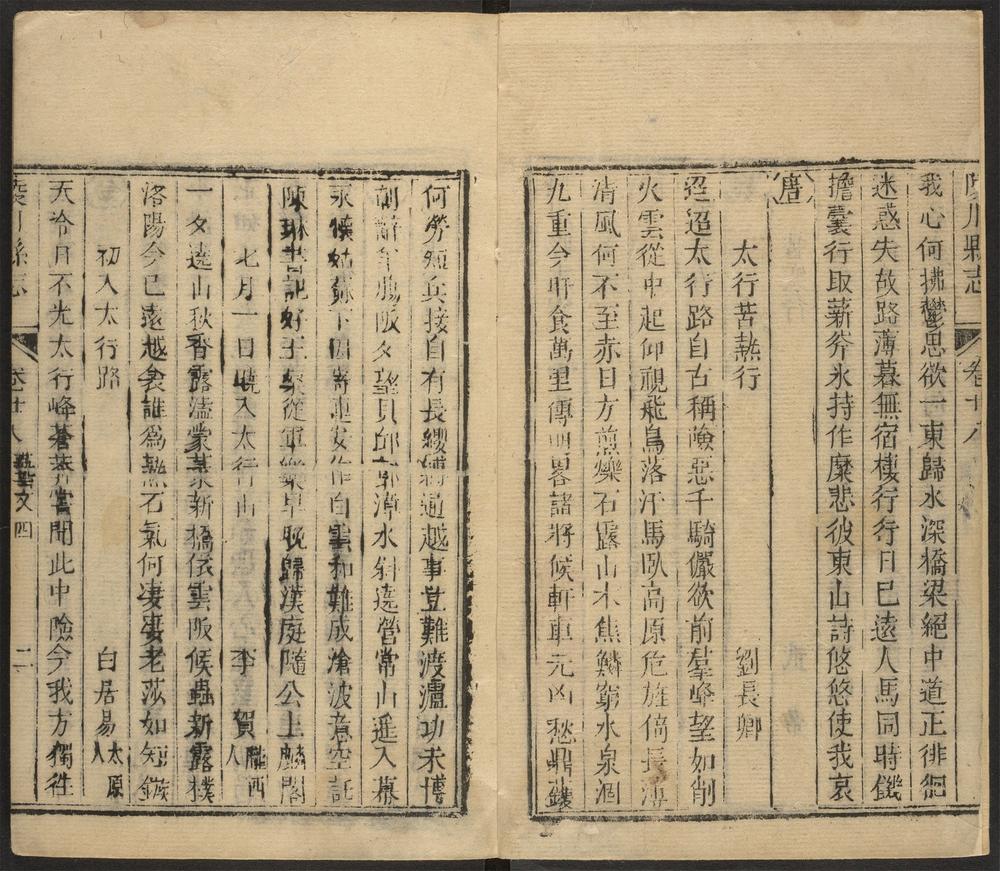 陵川縣志 卷十八
我心何拂鬱思欲一東歸水深橋梁絕中道正徘徊
迷惑失故路薄暮無宿棲行行日已遠人馬同時饑
擔囊行取薪斧氷持作糜悲彼東山詩悠悠使我哀
唐
太行苦熱行 劉長卿
迢迢太行路自古稱險惡千騎儼欲前羣峰望如削
火雲從中起仰視飛鳥落汗馬臥高原危旌倚長薄
清風何不至赤日方煎爍石露山木焦鱗窮水泉涸
九重今旰食萬里傳明畧諸將候軒車元凶愁鼎鑊
何勞短兵接自有長纓縛通越事豈難渡瀘功未博
朝辭羊腸阪夕望貝邱郭漳水斜遶營常山遥入幕
永懷姑蘇下因寄建安作白雲和難成滄波意空託
陳琳書記好王粲從軍樂早晚歸漢庭隨公上麟閣
七月一日曉入太行山 李賀 隴西人
一夕遶山秋香露溘蒙菉新橋倚雲阪候蟲新露樸
洛陽今已遠越衾誰為熟石氣何凄凄老莎如短鏃
初入太行路 白居易 太原人
天冷日不光太行峰蒼莽嘗聞此中險今我方獨往
陵川縣志 卷十八 藝文四 二